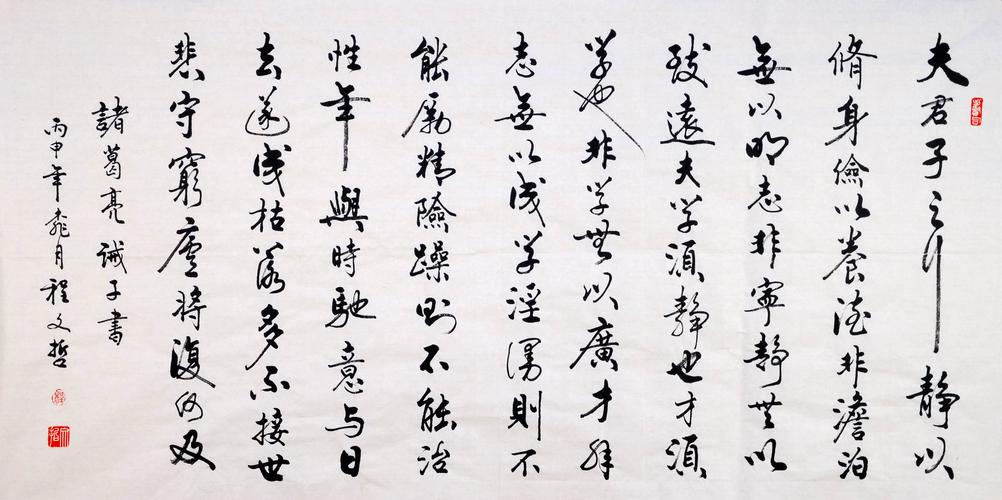 夫君子之行静以
脩身儉以養德非澹泊
無以明志非寧静無以
致遠夫学須静也才須
学也非学無以廣才非
志無以成学淫漫則不
能勵精險躁則不能治
性年與時馳意与日
去遂成枯落多不接世
悲守窮廬將復何及
諸葛亮誡子書
丙申年桃月程文哲